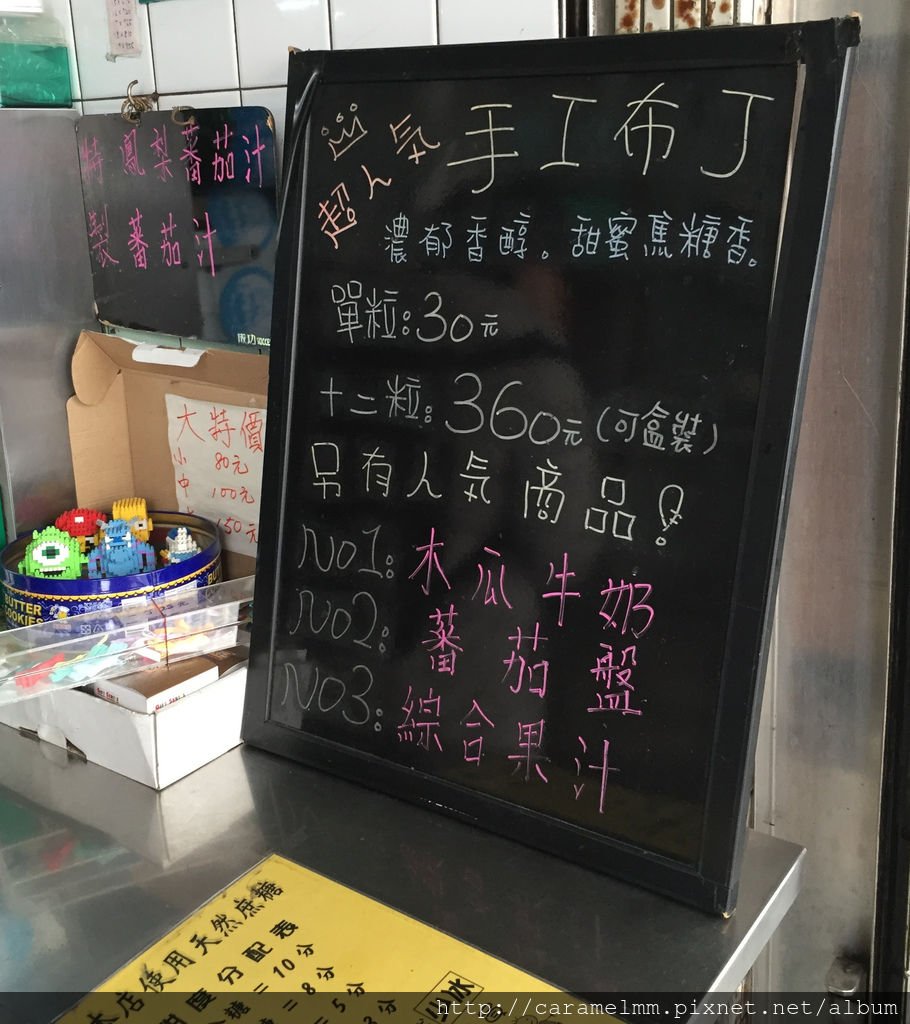 特 鳳梨蕃茄汁
製 蕃茄汁
大特價
小 80元
中 100元
150元
BUTTER
COOKIES
超人氣 手工布丁
濃郁香醇。甜蜜焦糖香。
單粒:30元
十二粒:360元(可盒裝)
另有人氣商品!
No1: 木瓜牛奶
No2: 蕃茄盤
No3: 綜合果汁
本店使用天然蔗糖
甜度分配表
糖 = 10分
= 8分
= 5分
少冰
http://caramelmm.pixnet.net/album